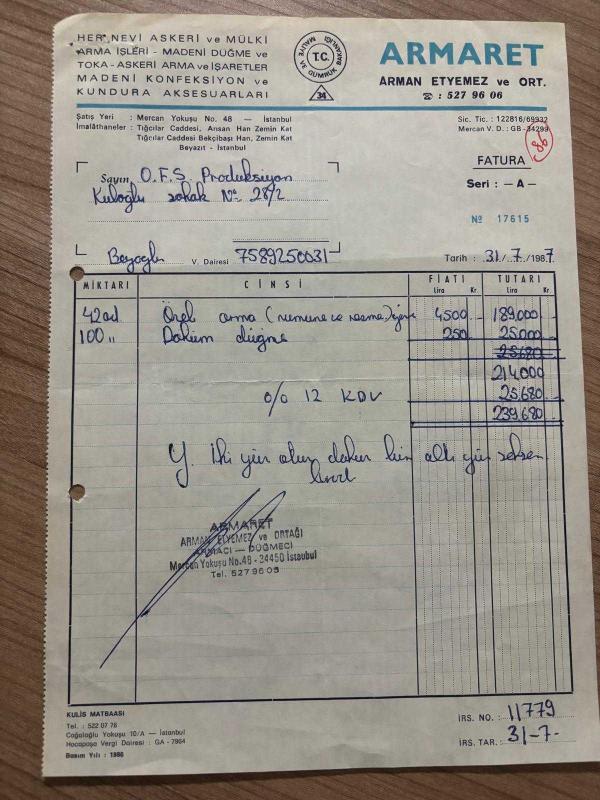 HER NEVİ ASKERİ ve MÜLKİ
ARMA İŞLERİ - MADENİ DÜĞME ve
TOKA - ASKERİ ARMA ve İŞARETLER
MADENİ KONFEKSİYON ve
KUNDURA AKSESUARLARI
MALİYE VE GÜMRÜK BAKANLIĞI
T.C.
34
ARMARET
ARMAN ETYEMEZ ve ORT.
☎ : 527 96 06
Satış Yeri : Mercan Yokuşu No. 48 — İstanbul
İmalâthaneler : Tığcılar Caddesi, Arısan Han Zemin Kat
Tığcılar Caddesi Bekçibaşı Han, Zemin Kat
Beyazıt - İstanbul
Sic. Tic. : 122816/69932
Mercan V. D. : GB-34299
86
FATURA
Seri : — A —
Nº 17615
Sayın O.F.S. Prodüksiyon
Kuloğlu sokak Nº 28/2
Beyoğlu V. Dairesi 7589250031
Tarih : 31./.7./1987
MİKTARI CİNSİ FİATI TUTARI
Lira Kr. Lira Kr.
42 ad Özel arma (numune ve resme) 4500 189.000
100 " Döküm düğme 250 25.000
25.680
214.000
% 12 KDV 25.680
239.680
Y. İki yüz otuz dokuz bin altı yüz seksen
liradır
ARMARET
ARMAN ETYEMEZ ve ORTAĞI
ARMACI — DÜĞMECİ
Mercan Yokuşu No.48 - 34450 İstanbul
Tel. 5279606
KULİS MATBAASI
Tel. : 522 07 76
Cağaloğlu Yokuşu 10/A — İstanbul
Hocapaşa Vergi Dairesi : GA - 7964
Basım Yılı : 1986
İRS. NO. : 11779
İRS. TAR. : 31-7-